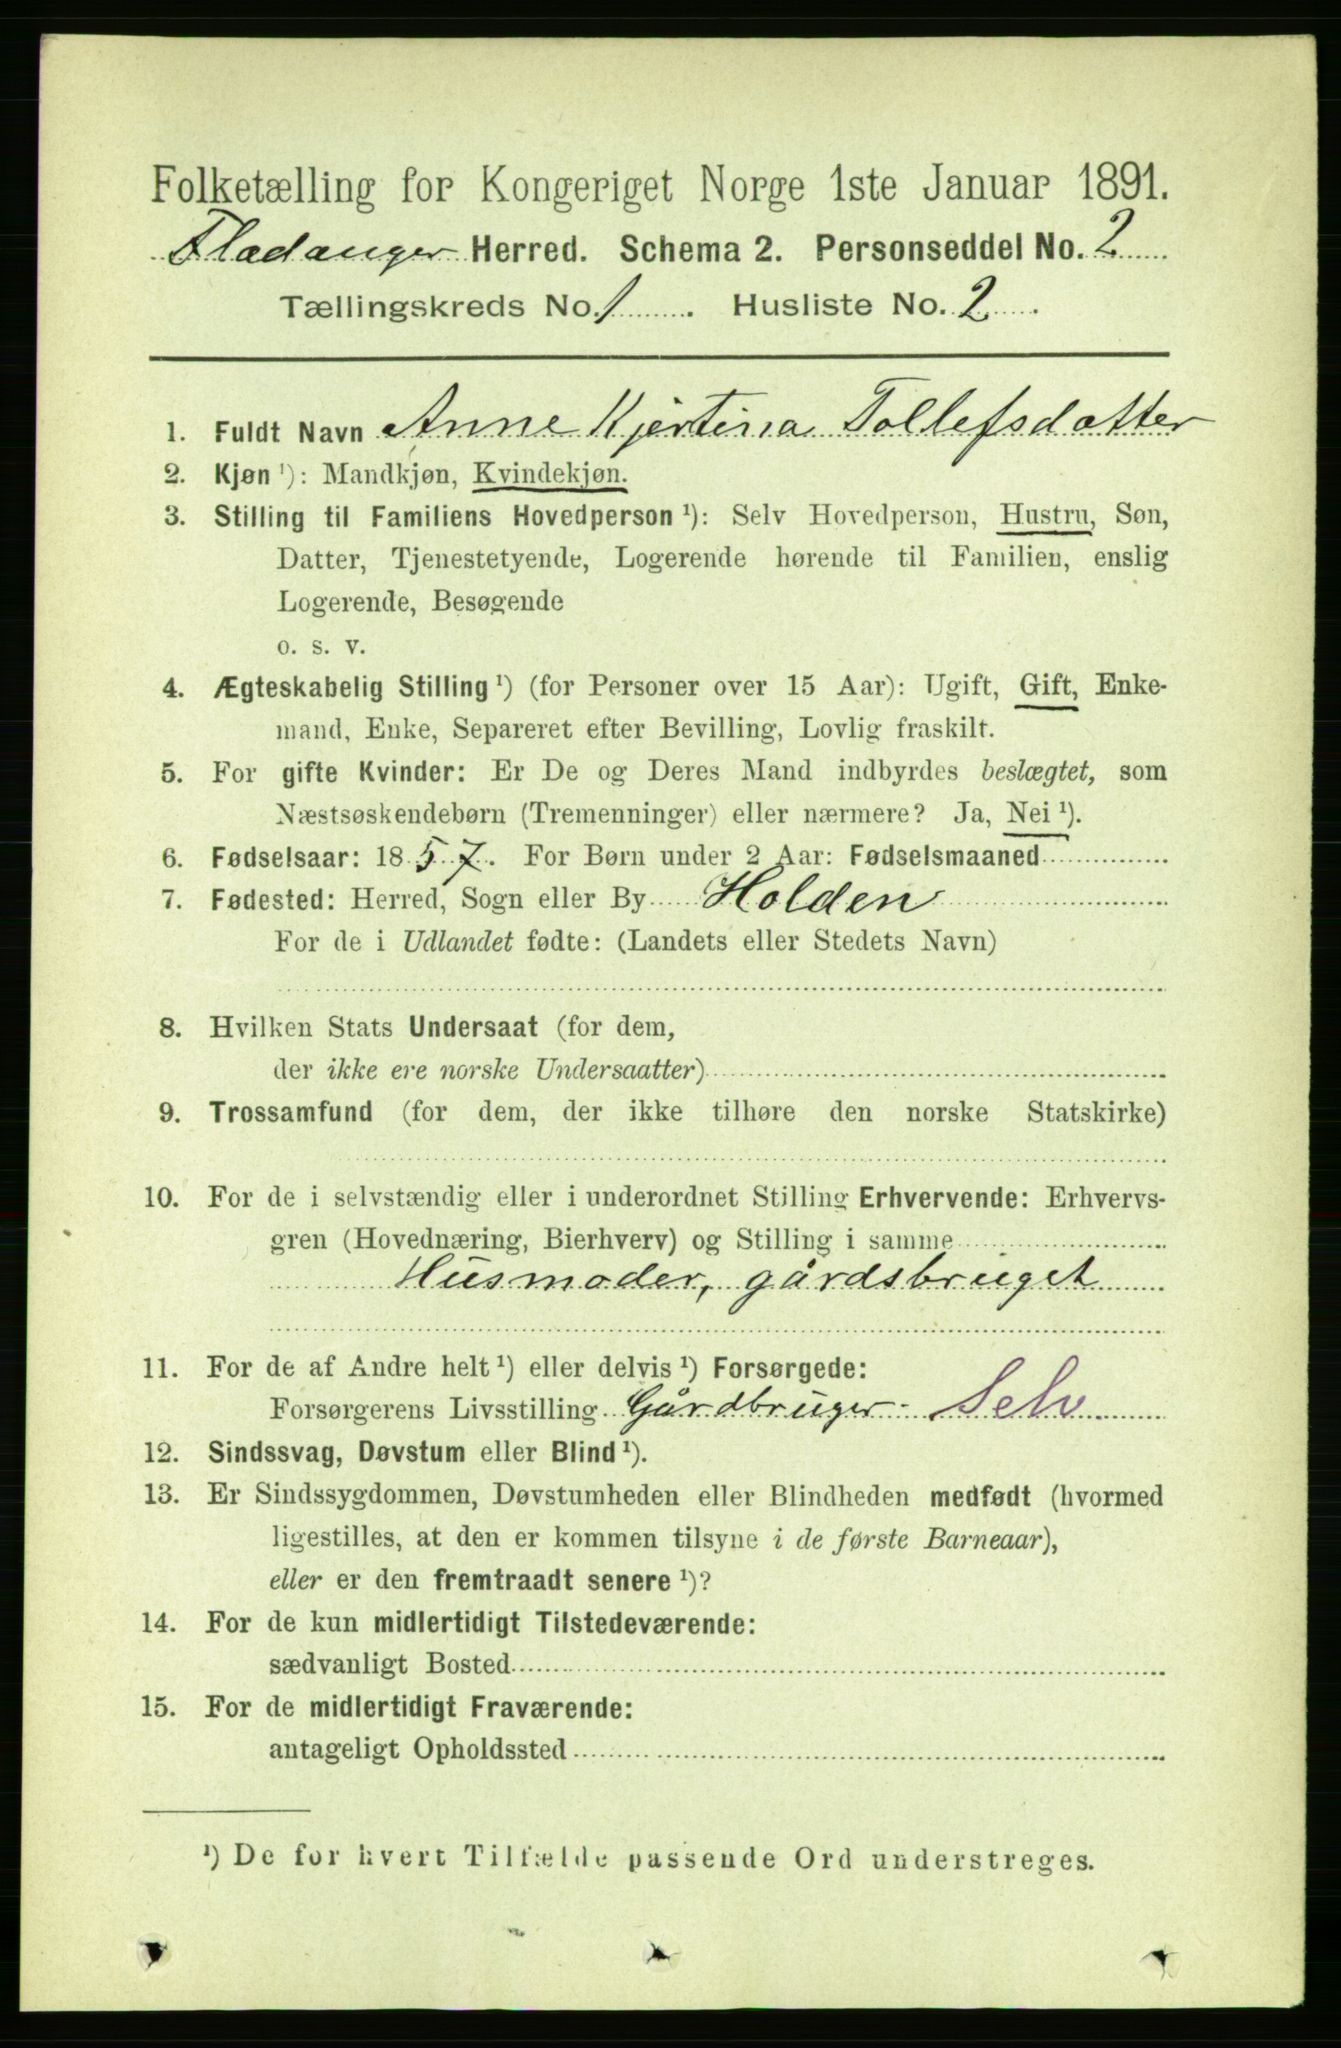 Folketælling for Kongeriget Norge 1ste Januar 1891.
Fladanger Herred. Schema 2. Personseddel No. 2
Tællingskreds No. 1. Husliste No. 2
1. Fuldt Navn Anne Kjertina Tollefsdatter
2. Kjøn ¹): Mandkjøn, Kvindekjøn.
3. Stilling til Familiens Hovedperson ¹): Selv Hovedperson, Hustru, Søn,
Datter, Tjenestetyende, Logerende hørende til Familien, enslig
Logerende, Besøgende
o. s. v.
4. Ægteskabelig Stilling ¹) (for Personer over 15 Aar): Ugift, Gift, Enke-
mand, Enke, Separeret efter Bevilling, Lovlig fraskilt.
5. For gifte Kvinder: Er De og Deres Mand indbyrdes beslægtet, som
Næstsøskendebørn (Tremenninger) eller nærmere? Ja, Nei ¹).
6. Fødselsaar: 1857. For Børn under 2 Aar: Fødselsmaaned
7. Fødested: Herred, Sogn eller By Holden
For de i Udlandet fødte: (Landets eller Stedets Navn)
8. Hvilken Stats Undersaat (for dem,
der ikke ere norske Undersaatter)
9. Trossamfund (for dem, der ikke tilhøre den norske Statskirke)
10. For de i selvstændig eller i underordnet Stilling Erhvervende: Erhvervs-
gren (Hovednæring, Bierhverv) og Stilling i samme
Husmoder, gårdsbruget
11. For de af Andre helt ¹) eller delvis ¹) Forsørgede:
Forsørgerens Livsstilling Gårdbruger - Selv
12. Sindssvag, Døvstum eller Blind ¹).
13. Er Sindssygdommen, Døvstumheden eller Blindheden medfødt (hvormed
ligestilles, at den er kommen tilsyne i de første Barneaar),
eller er den fremtraadt senere ¹)?
14. For de kun midlertidigt Tilstedeværende:
sædvanligt Bosted
15. For de midlertidigt Fraværende:
antageligt Opholdssted
¹) De for hvert Tilfælde passende Ord understreges.